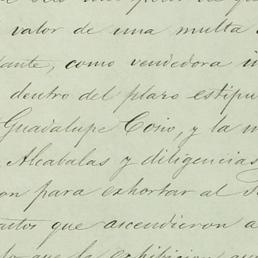 valor de una multa
como vendedora
dentro del plazo estipu
Guadalupe Cosio, y la
Alcabalas y diligencias
on para exhortar al
que ascendieron a
que la exhibicion